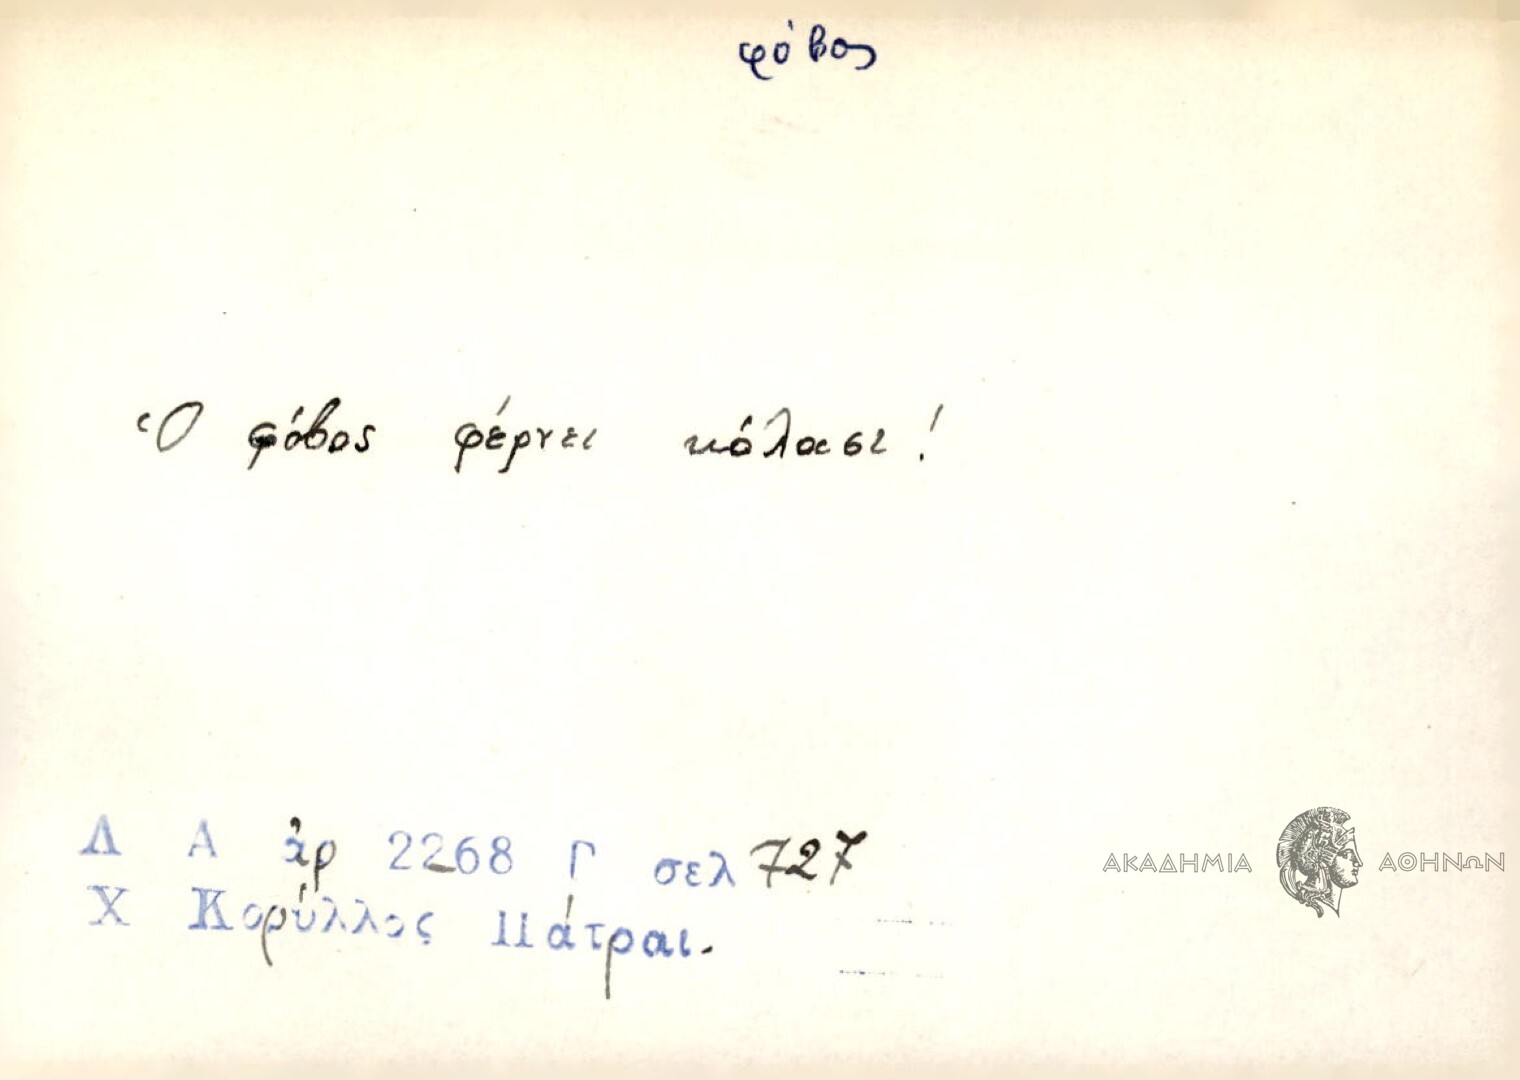 φόβος
Ὁ φόβος φέρνει κόλασι!
Λ Α ἀρ 2268 Γ σελ 727
Χ Κορύλλος Πάτραι.
ΑΚΑΔΗΜΙΑ ΑΘΗΝΩΝ